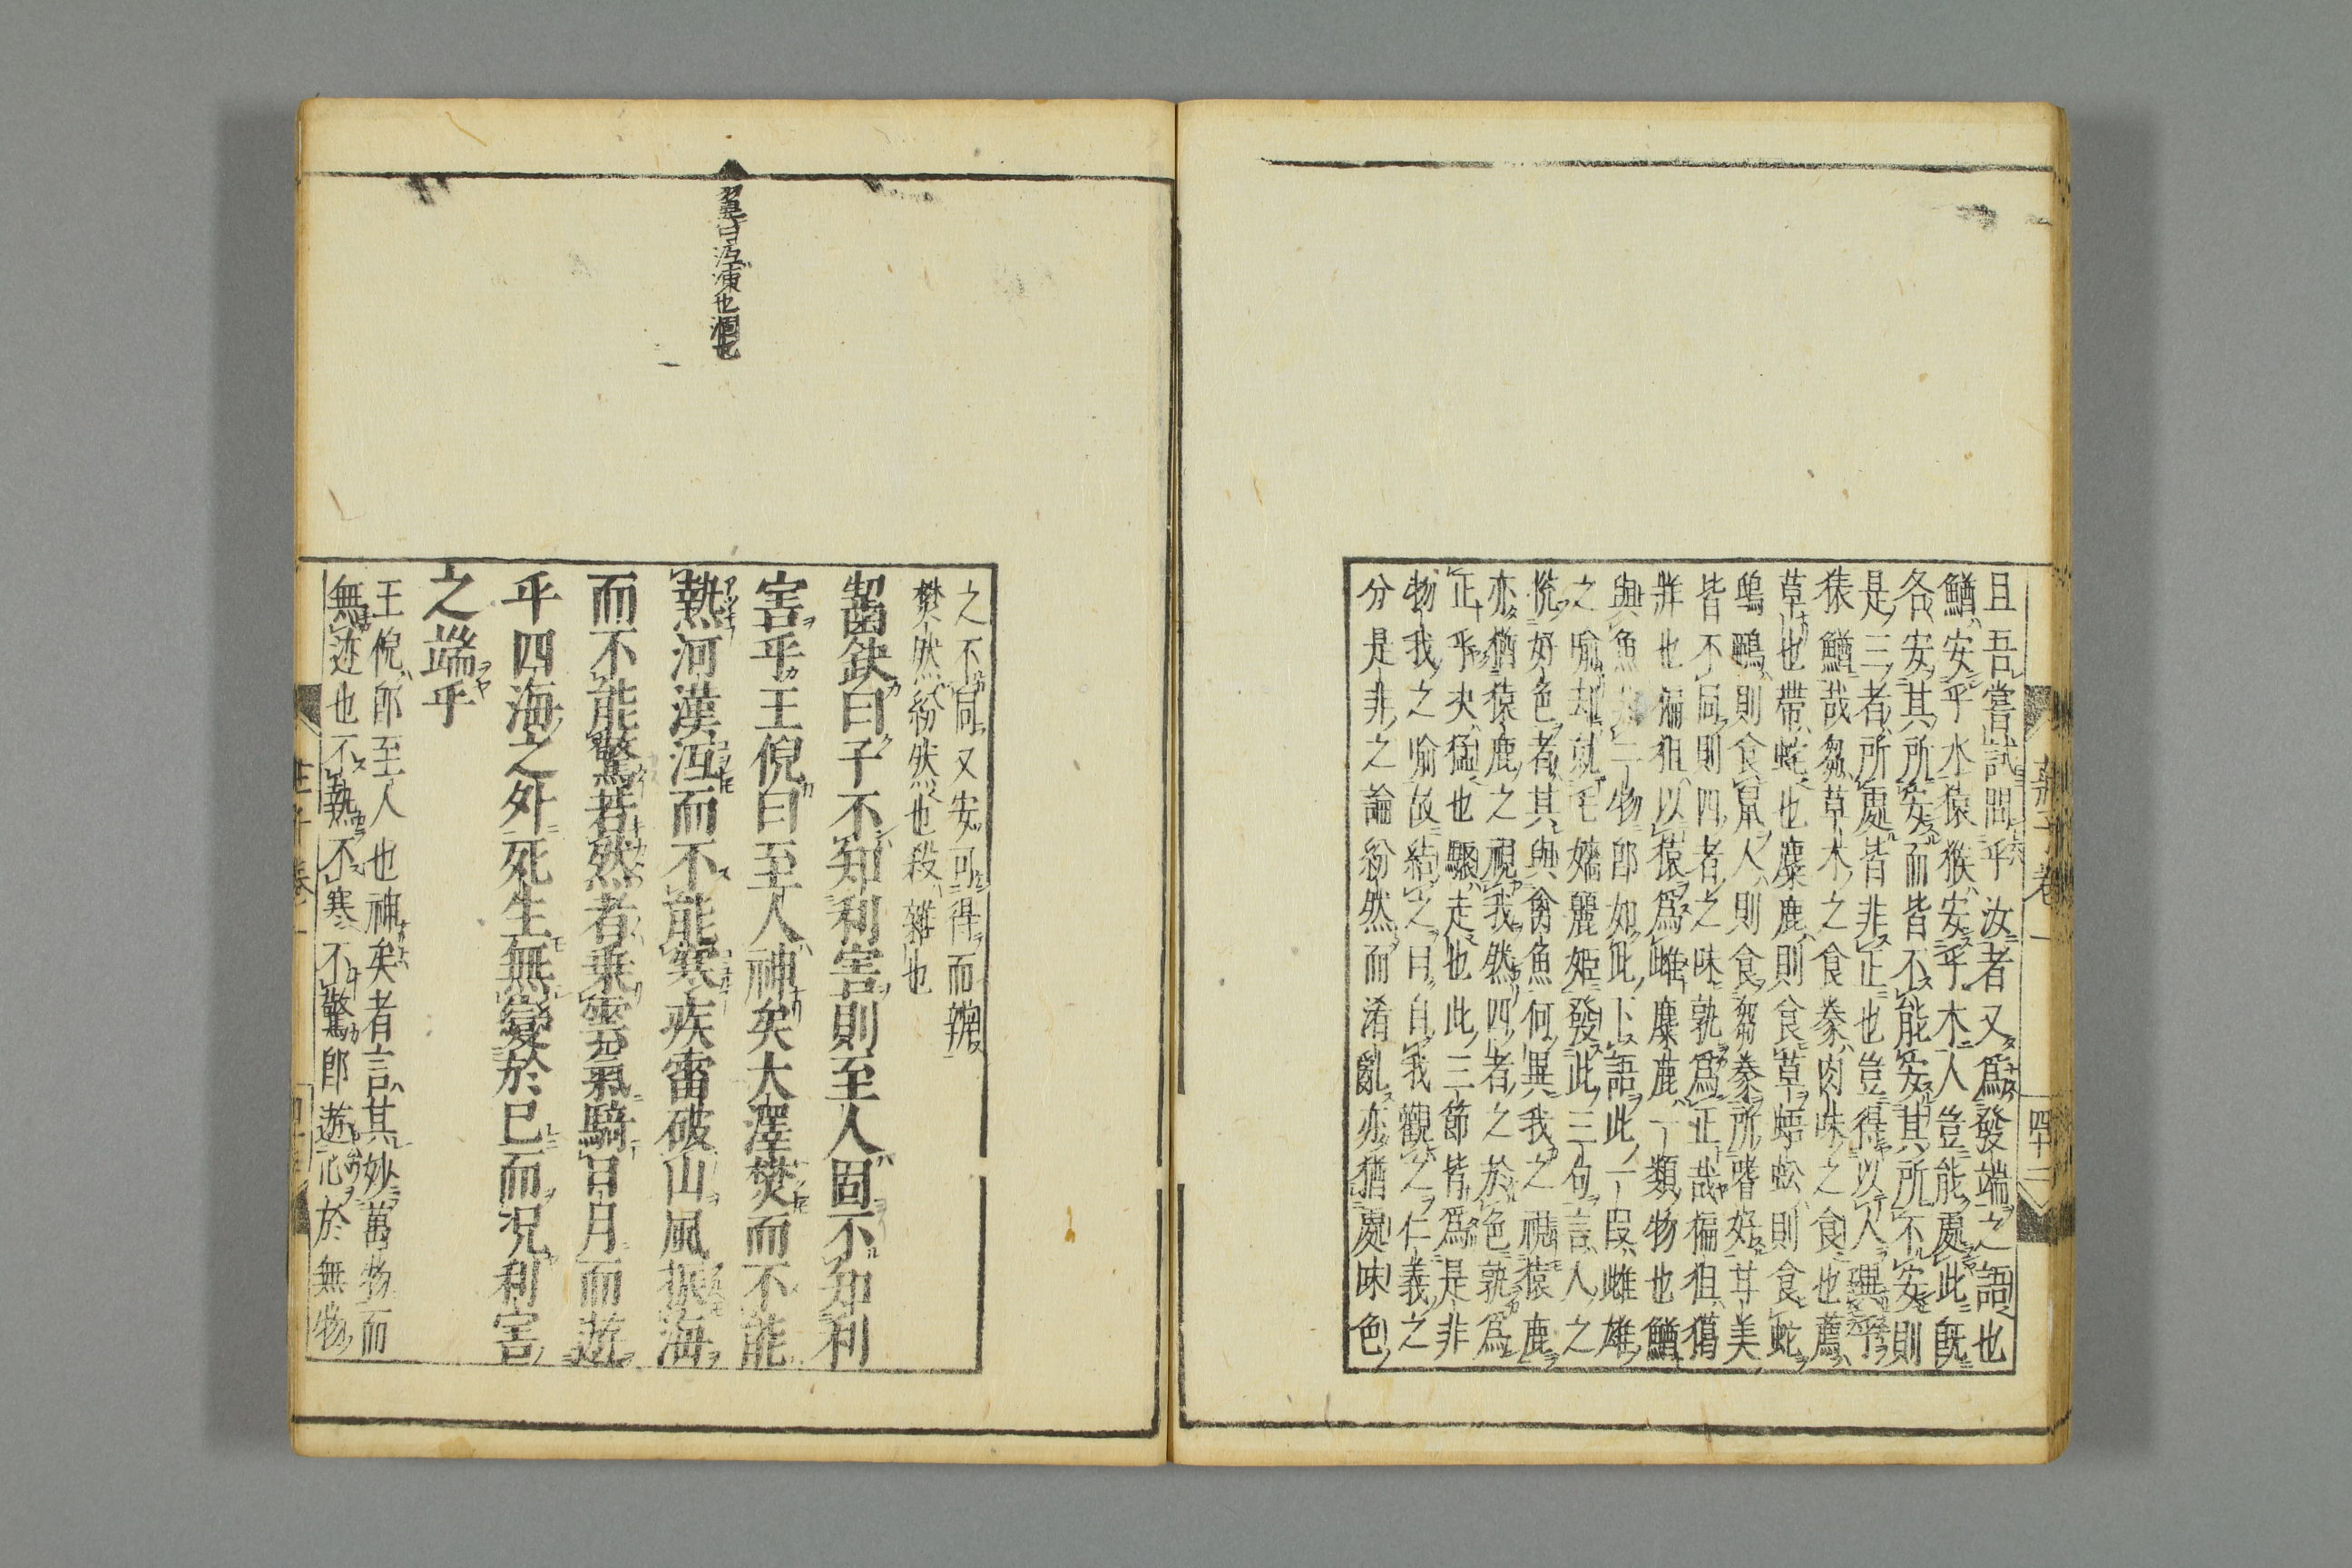 莊子卷一
四十二
且吾嘗試問乎汝者又爲發端之語也
鰌安乎水猿猴安乎木人豈能處此既
各安其所安而皆不能安其所不安則
是三者所處皆非正也豈得以人異乎
猿鰌哉芻草木之食豢肉味之食也薦
草也帶蛇也麋鹿則食草蝍蛆則食蛇
鴟鴉則食鼠人則食芻豢所嗜好甘美
皆不同則四者之味孰爲正哉猵狙獦
牂也猵狙以猿爲雌麋鹿一類物也鰌
與魚亦一物即如此下語此一段雌雄
之喻却就毛嬙麗姬發此三句言人之
悅好色者其與禽魚何異我之視猿鹿
亦猶猿鹿之視我然四者之於色孰爲
正乎決猛也驟走也此三節皆爲是非
物我之喻故結之曰自我觀之仁義之
分是非之論紛然而淆亂亦猶處味色
之不同又安可得而辯
樊然紛然也殽雜也
齧缺曰子不知利害則至人固不知利
害乎王倪曰至人神矣大澤焚而不能
熱河漢沍而不能寒疾雷破山風振海
而不能驚若然者乘雲氣騎日月而遊
乎四海之外死生無變於已而況利害
之端乎
王倪即至人也神矣者言其妙萬物而
無迹也不熱不寒不驚即遊心於無物
翼曰沍凍也涸也
莊子卷一